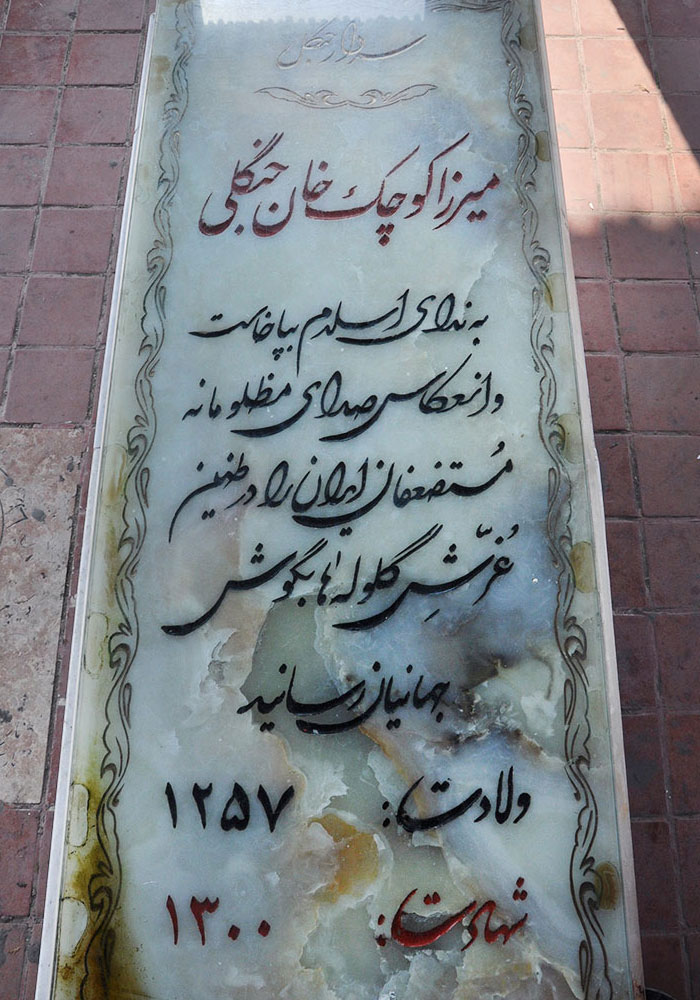 سردار جنگل
میرزا کوچک خان جنگلی
به ندای اسلام بپاخاست
و انعکاس صدای مظلومانه
مُستضعفان ایران را در طنین
غُرّشِ گلوله‌ها بگوش
جهانیان رسانید
ولادت: ۱۲۵۷
شهادت: ۱۳۰۰